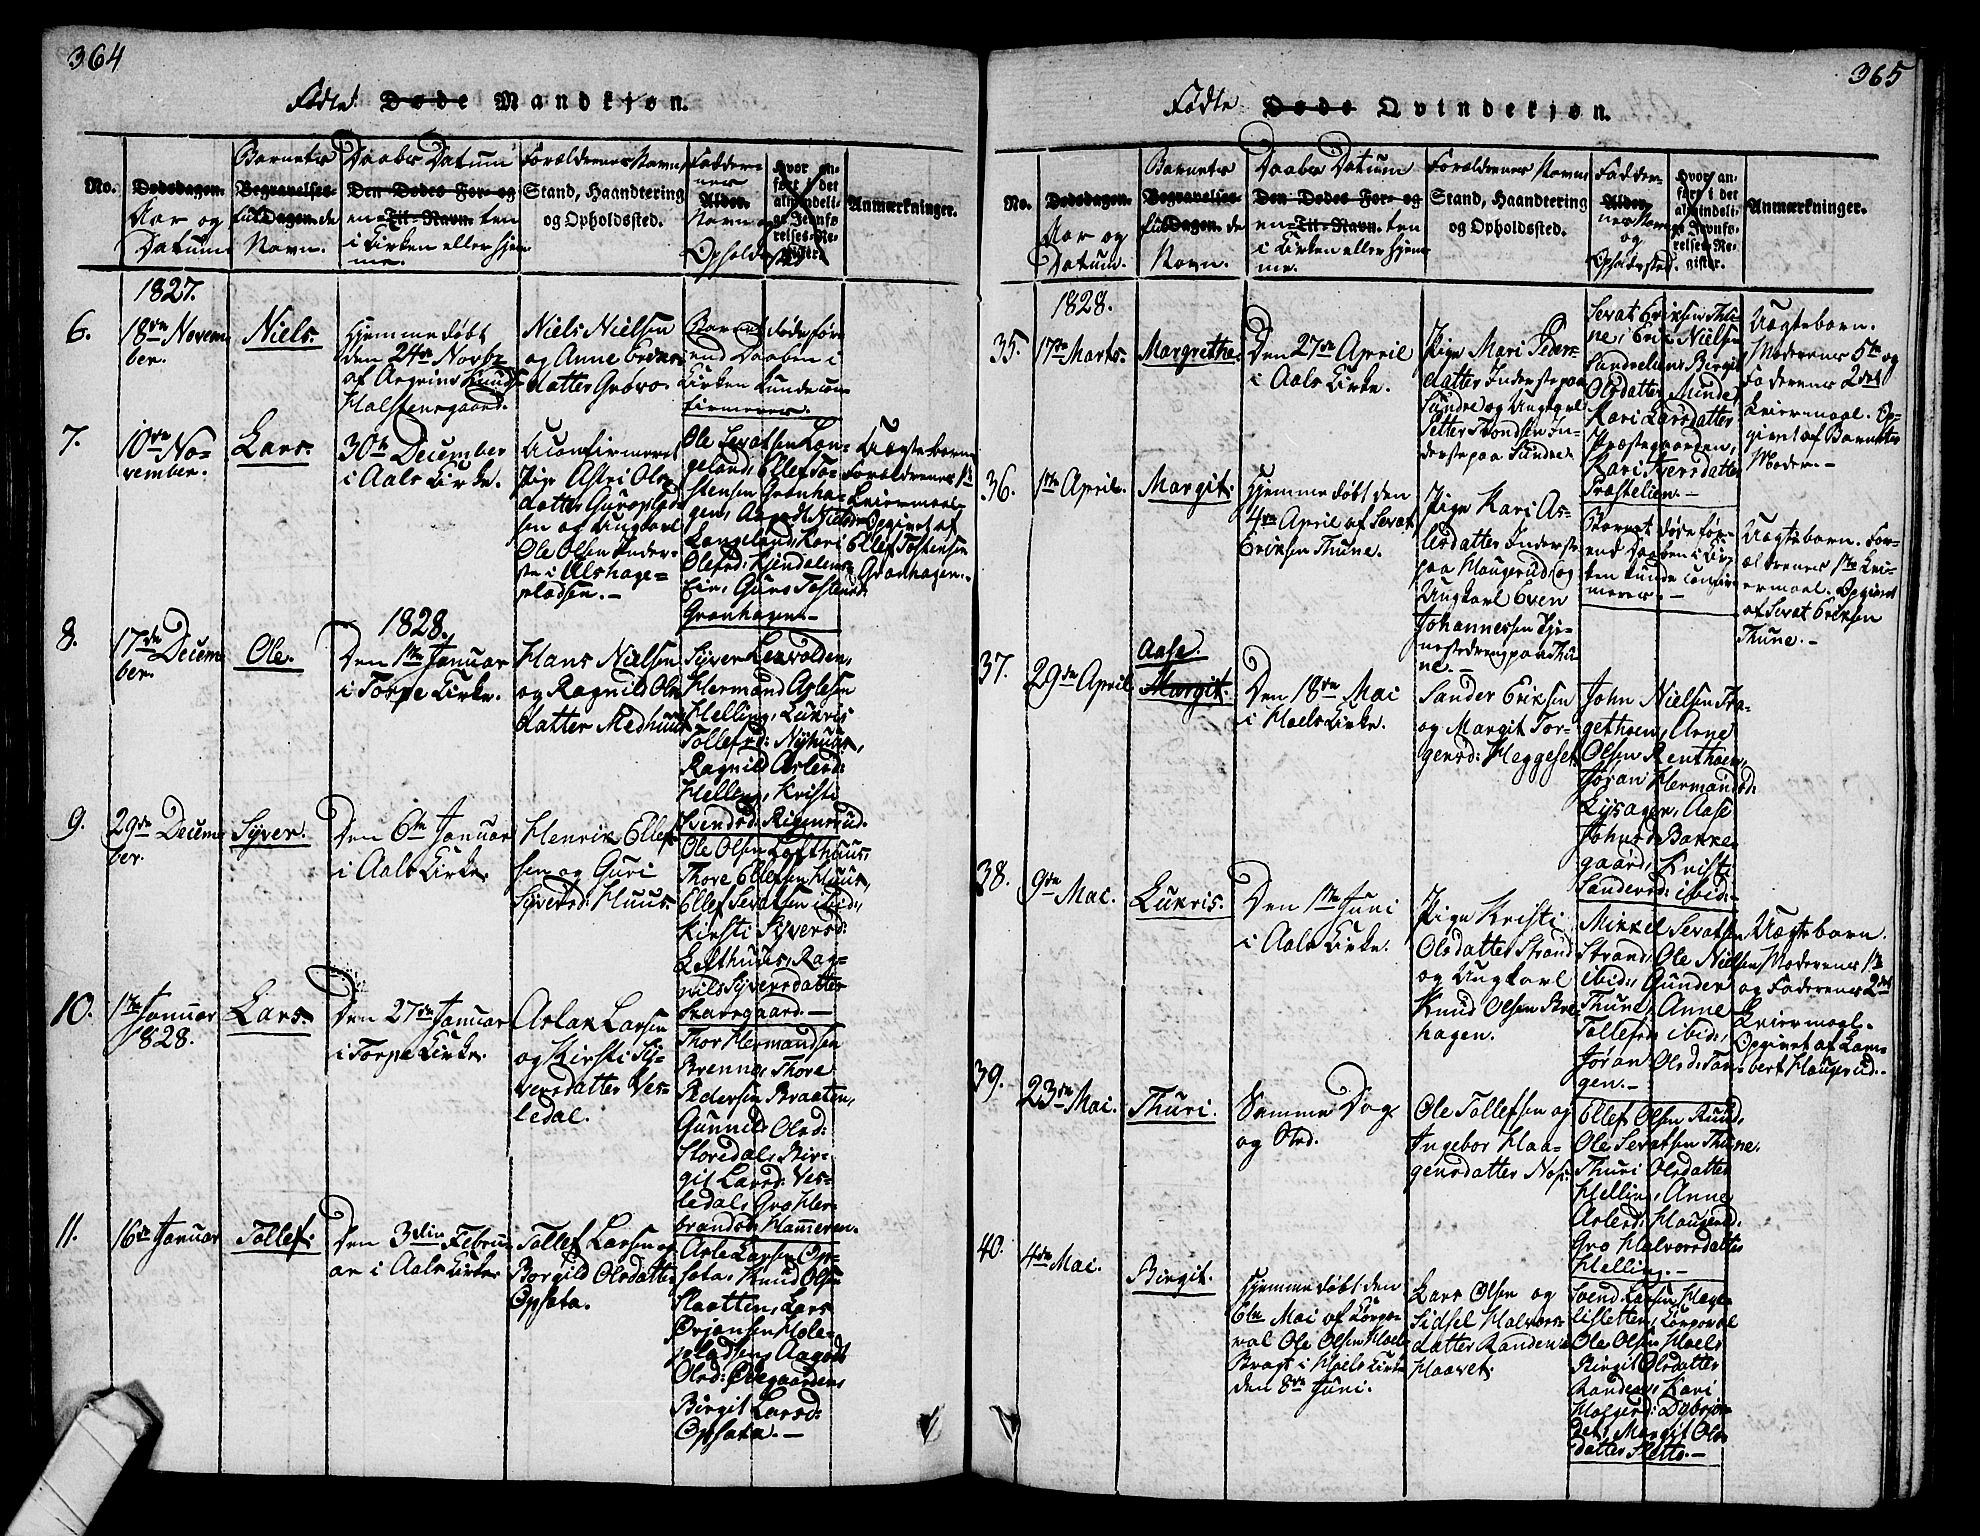 364
Fødte Døde Mandkjøn.
No.
Dødsdagen.
Aar og
Datum
Barnets
Begravelses-
fulddagen.de
Navn.
Daabs Datum
Den Dødes For- og
en Til-Navn. ten
i Kirken eller hjem
me.
Forældrenes Navn
Stand, Haandtering
og Opholdssted.
Fadder-
nes
Alder.
Navn og
Opholds
Hvor an-
ført i det
almindeli-
ge Jevnfø-
relses-Re-
gister.
Anmærkninger.
1827.
6.
18de Novem
ber.
Niels.
Hjemmedøbt
den 24de Novbr
af Asgrim Knuds
Halstensgaard.
Niels Nielsen
og Anne Eriks-
datter Grøvo
Barnet døde før
end Daaben i
Kirken kunde con
firmeres.
7.
10de No-
vember.
Lars.
30te December
i Aals Kirke.
Uconfirmeret
Pige Astri Ols-
datter Guroplad-
sen og Ungkarl
Ole Olsen Inder-
ste i Alshage-
pladsen.-
Ole Sevatsen Lan-
geland, Ellef To-
stensen Grønha-
gen, Aagodt Nielsdr
Langeland, Kari
Olesd: Kjendalens
Eie, Guro Tostensd
Grønhagen.-
Uægtebarn
Forældrenes 1te
Leiermaal
Opgivet af
Ellef Tostensen
Grønhagen.-
8.
17de Decem
ber.
Ole.
1828.
Den 1te Januar
i Torpe Kirke.
Hans Nielsen
og Ragnild Ols-
datter Medhuus
Syver Leksvolden,
Hermand Aslesen
Helling, Lukris
Tollefsd: Nyhuus,
Ragnild Aslesd:
Helling, Kristi
Svendsd: Rigensrud.
9.
29de Decem
ber.
Syver.
Den 6te Januar
i Aals Kirke.
Henrik Ellef-
sen og Guri
Syversd: Huus.
Ole Olsen Lofthuus,
Thore Ellefsen Huus,
Ellef Sevatsen ibid:,
Kirsti Syversd:
Lofthuus, Rag-
nild Syversdatter
Skarsgaard.-
10.
1te Januar
1828.
Lars.
Den 27de Januar
i Torpe Kirke.
Aslak Larsen
og Kirsti Sy-
versdatter Ves-
ledal.
Thor Hermandsen
Brenno, Thore
Pedersen Braaten,
Gunnild Olsd:
Storedal, Bir-
git Larsd: Ves-
ledal, Gro Her-
brandsd: Hameren.
11.
16de Januar
Tollef.
Den 3die Febru-
ar i Aals Kirke
Tollef Larsen og
Borgild Olsdatter
Opsata.
Asle Larsen Op-
sata, Knud Olsen
Slaatten, Lars
Ørjansen Hole-
pladsen, Aagodt
Olsd: Ødegaarden,
Birgit Larsd:
Opsata.-
365
Fødte Døde Qvindekjøn.
No.
Dødsdagen.
Aar og
Datum.
Barnets
Begravelses-
fulddagen.de
Navn.
Daabs Datum
Den Dødes For- og
en Til-Navn. ten
i Kirken eller hjem
me.
Forældrenes Navn
Stand, Haandtering
og Opholdssted.
Fadder-
Alder.
nes Navn
og
Opholdssted.
Hvor an-
ført i det
almindeli-
ge Jevnfø-
relses-Re-
gister.
Anmærkninger.
1828.
35.
17de Marts.
Margrethe.
Den 27de April
i Aals Kirke.
Pige Mari Peder-
datter Inderste paa
Sundre og Ungkarl
Petter Trondsen In-
derste paa Sundre
Sevat Eriksen Thu-
ne, Erik Nielsen
Sandrelien, Birgit
Olsdatter Minde,
Kari Larsdatter
Præstegaarden,
Kari Iversdatter
Præstelien.-
Uægtebarn.
Moderens 5te og
Faderens 2det
Leiermaal. Op-
givet af Barnets
Moder.-
36.
1te April.
Margit.
Hjemmedøbt den
4de April af Sevat
Eriksen Thune.
Pige Kari As-
lesdatter Inderste
paa Haugerud og
Ungkarl Even
Johannessen Tje-
nestedreng paa Thu-
ne.-
Barnet døde før-
end Daaben i Kir-
ken kunde confir-
meres.-
Uægtebarn. For-
ældrenes 1te Lei-
ermaal. Opgivet
af Sevat Eriksen
Thune.-
37.
29de April
Aase.
Margit.
Den 18de Mai
i Hoels Kirke.
Sander Eriksen
og Margit Tor-
gersd: Heggeset.
John Nielsen Tra-
gethoen, Arne
Olsen Renthoen,
Jøran Hermandsd:
Lysager, Aase
Johnsd: Bakke-
gaard, Kristi
Sandersd: ibid:-
38.
9de Mai.
Lukris.
Den 1te Juni
i Aals Kirke.
Pige Kristi
Olsdatter Strand
og Ungkarl
Knud Olsen Bre-
hagen.
Mikkel Sevatsen
Strand, Ole Nielsen
ibid:, Gunder
Thune, Anne
Tollefsd: ibid:,
Jøran Olsd: Tan-
gen.-
Uægtebarn.
Moderens 1te
og Faderens 2det
Leiermaal.
Opgivet af Lam-
bert Haugerud.-
39.
23de Mai.
Thuri.
Samme Dag
og Sted.
Ole Tollefsen og
Ingebor Haa-
gensdatter Nos:
Ellef Olsen Ruud,
Ole Sevatsen Thune,
Thuri Olsdatter
Helling, Anne
Aslesd: Haugerud,
Gro Halvorsdatter
Helling.-
40.
4de Mai.
Birgit.
Hjemmedøbt den
6te Mai af Corpo-
ral Ole Olsen Hoel.
Bragt i Hoels Kirke
den 8de Juni.
Lars Olsen og
Sidsel Halvors-
datter Randen i
Haavet.
Svend Larsen Hege-
lisletten, Corporal
Ole Olsen Hoel,
Birgit Olsdatter
Randen, Kari
Holgersd: Dobrjon-
det, Margit Ols-
datter Sletto.-